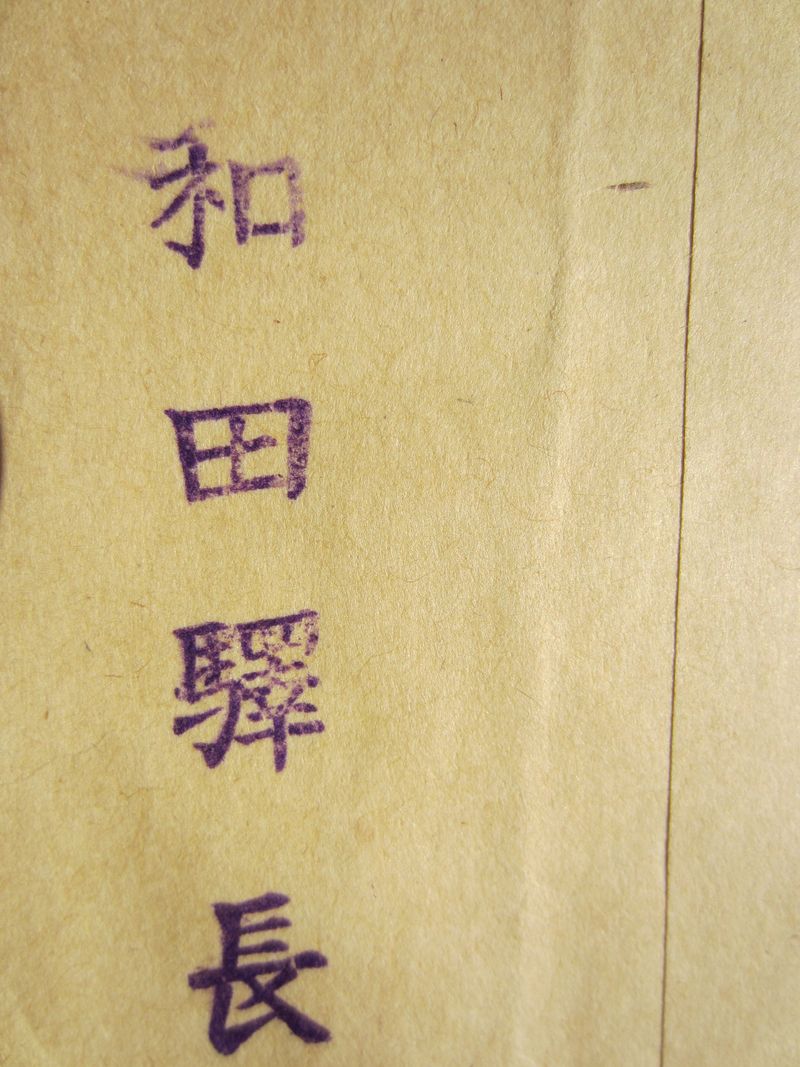 和田驛長